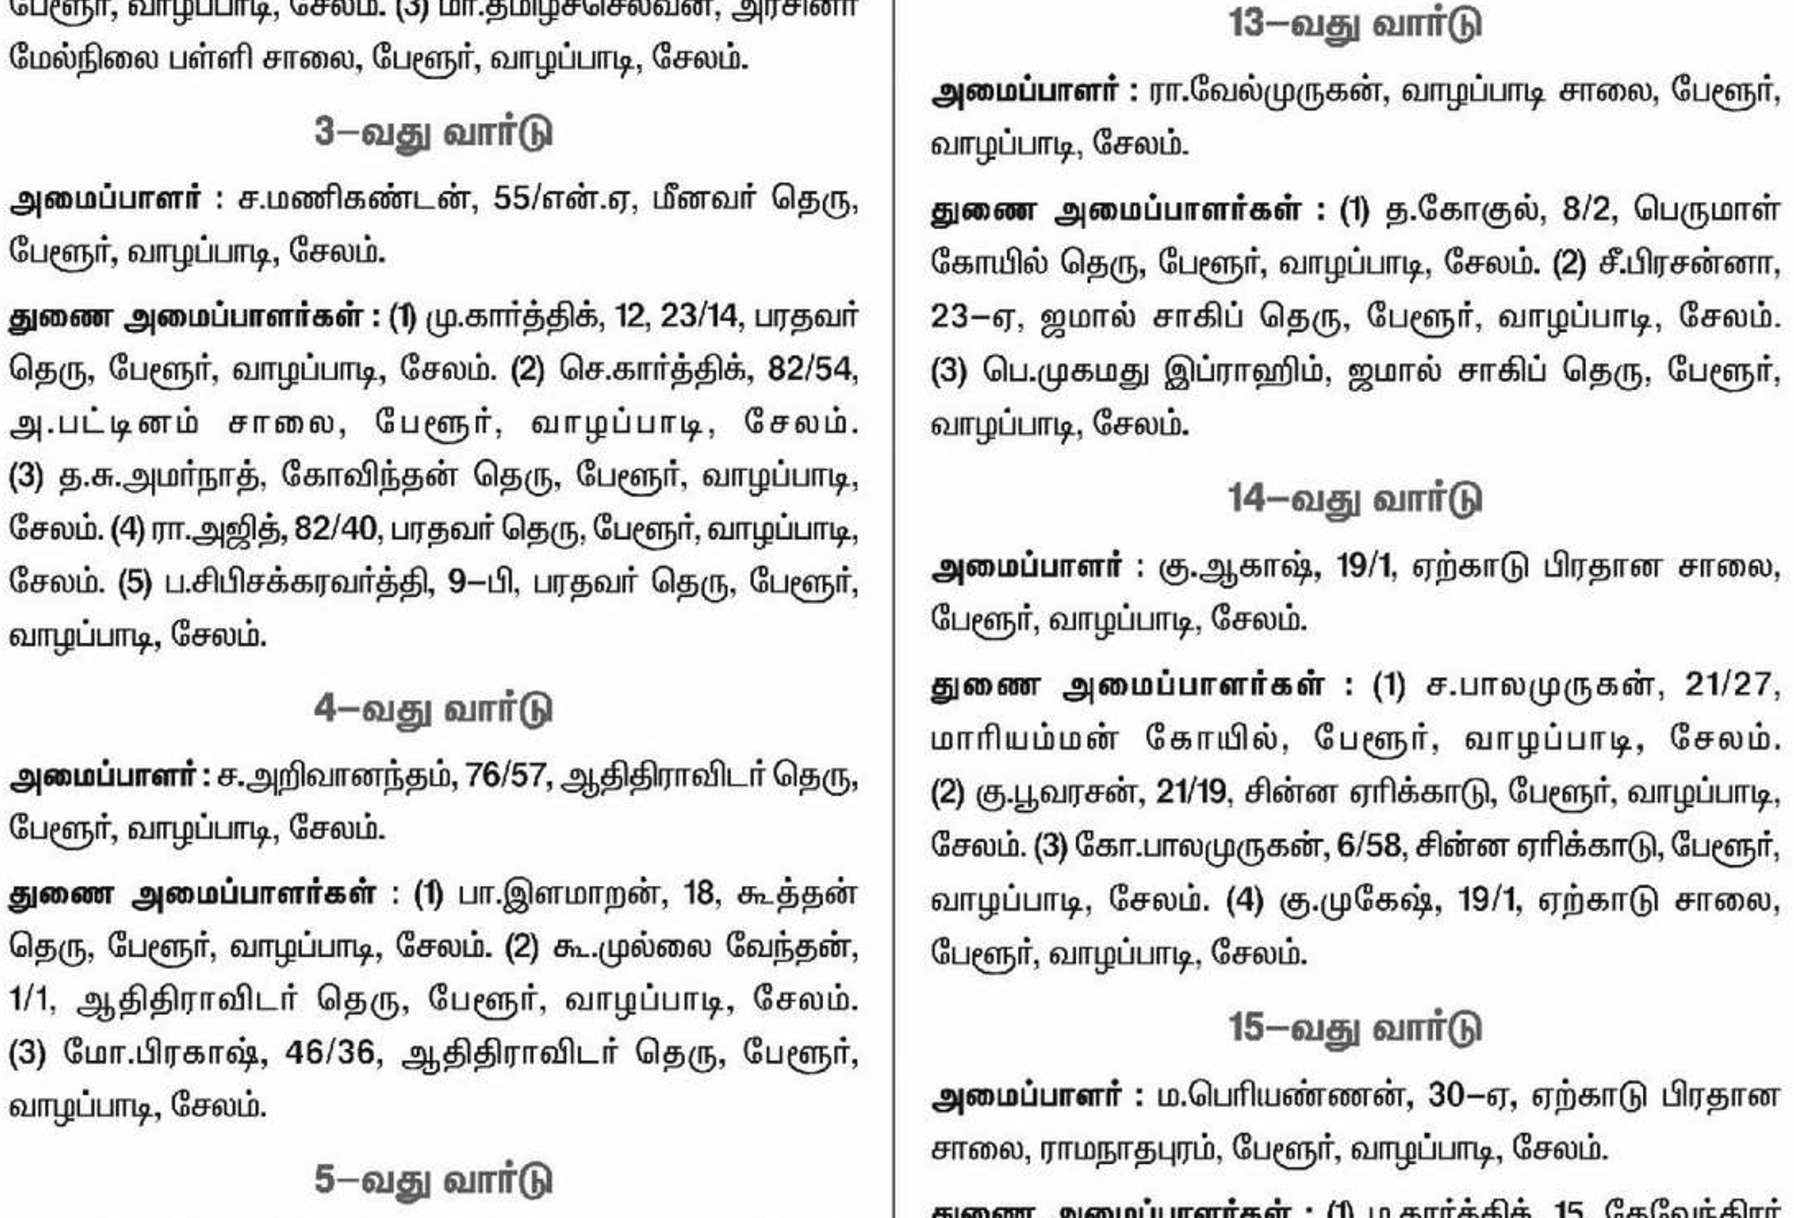 பேளூர், வாழப்பாடி, சேலம். (3) மா.தமிழ்ச்செல்வன், அரசினர்
மேல்நிலை பள்ளி சாலை, பேளூர், வாழப்பாடி, சேலம்.
3–வது வார்டு
அமைப்பாளர் : ச.மணிகண்டன், 55/என்.ஏ, மீனவர் தெரு,
பேளூர், வாழப்பாடி, சேலம்.
துணை அமைப்பாளர்கள் : (1) மு.கார்த்திக், 12, 23/14, பரதவர்
தெரு, பேளூர், வாழப்பாடி, சேலம். (2) செ.கார்த்திக், 82/54,
அ.பட்டினம் சாலை, பேளூர், வாழப்பாடி, சேலம்.
(3) த.சு.அமர்நாத், கோவிந்தன் தெரு, பேளூர், வாழப்பாடி,
சேலம். (4) ரா.அஜித், 82/40, பரதவர் தெரு, பேளூர், வாழப்பாடி,
சேலம். (5) ப.சிபிசக்கரவர்த்தி, 9–பி, பரதவர் தெரு, பேளூர்,
வாழப்பாடி, சேலம்.
4–வது வார்டு
அமைப்பாளர் : ச.அறிவானந்தம், 76/57, ஆதிதிராவிடர் தெரு,
பேளூர், வாழப்பாடி, சேலம்.
துணை அமைப்பாளர்கள் : (1) பா.இளமாறன், 18, கூத்தன்
தெரு, பேளூர், வாழப்பாடி, சேலம். (2) கூ.முல்லை வேந்தன்,
1/1, ஆதிதிராவிடர் தெரு, பேளூர், வாழப்பாடி, சேலம்.
(3) மோ.பிரகாஷ், 46/36, ஆதிதிராவிடர் தெரு, பேளூர்,
வாழப்பாடி, சேலம்.
5–வது வார்டு
13–வது வார்டு
அமைப்பாளர் : ரா.வேல்முருகன், வாழப்பாடி சாலை, பேளூர்,
வாழப்பாடி, சேலம்.
துணை அமைப்பாளர்கள் : (1) த.கோகுல், 8/2, பெருமாள்
கோயில் தெரு, பேளூர், வாழப்பாடி, சேலம். (2) சீ.பிரசன்னா,
23–ஏ, ஜமால் சாகிப் தெரு, பேளூர், வாழப்பாடி, சேலம்.
(3) பெ.முகமது இப்ராஹிம், ஜமால் சாகிப் தெரு, பேளூர்,
வாழப்பாடி, சேலம்.
14–வது வார்டு
அமைப்பாளர் : கு.ஆகாஷ், 19/1, ஏற்காடு பிரதான சாலை,
பேளூர், வாழப்பாடி, சேலம்.
துணை அமைப்பாளர்கள் : (1) ச.பாலமுருகன், 21/27,
மாரியம்மன் கோயில், பேளூர், வாழப்பாடி, சேலம்.
(2) கு.பூவரசன், 21/19, சின்ன ஏரிக்காடு, பேளூர், வாழப்பாடி,
சேலம். (3) கோ.பாலமுருகன், 6/58, சின்ன ஏரிக்காடு, பேளூர்,
வாழப்பாடி, சேலம். (4) கு.முகேஷ், 19/1, ஏற்காடு சாலை,
பேளூர், வாழப்பாடி, சேலம்.
15–வது வார்டு
அமைப்பாளர் : ம.பெரியண்ணன், 30–ஏ, ஏற்காடு பிரதான
சாலை, ராமநாதபுரம், பேளூர், வாழப்பாடி, சேலம்.
துணை அமைப்பாளர்கள் : (1) ம.கார்த்திக், 15, தேவேந்திரர்